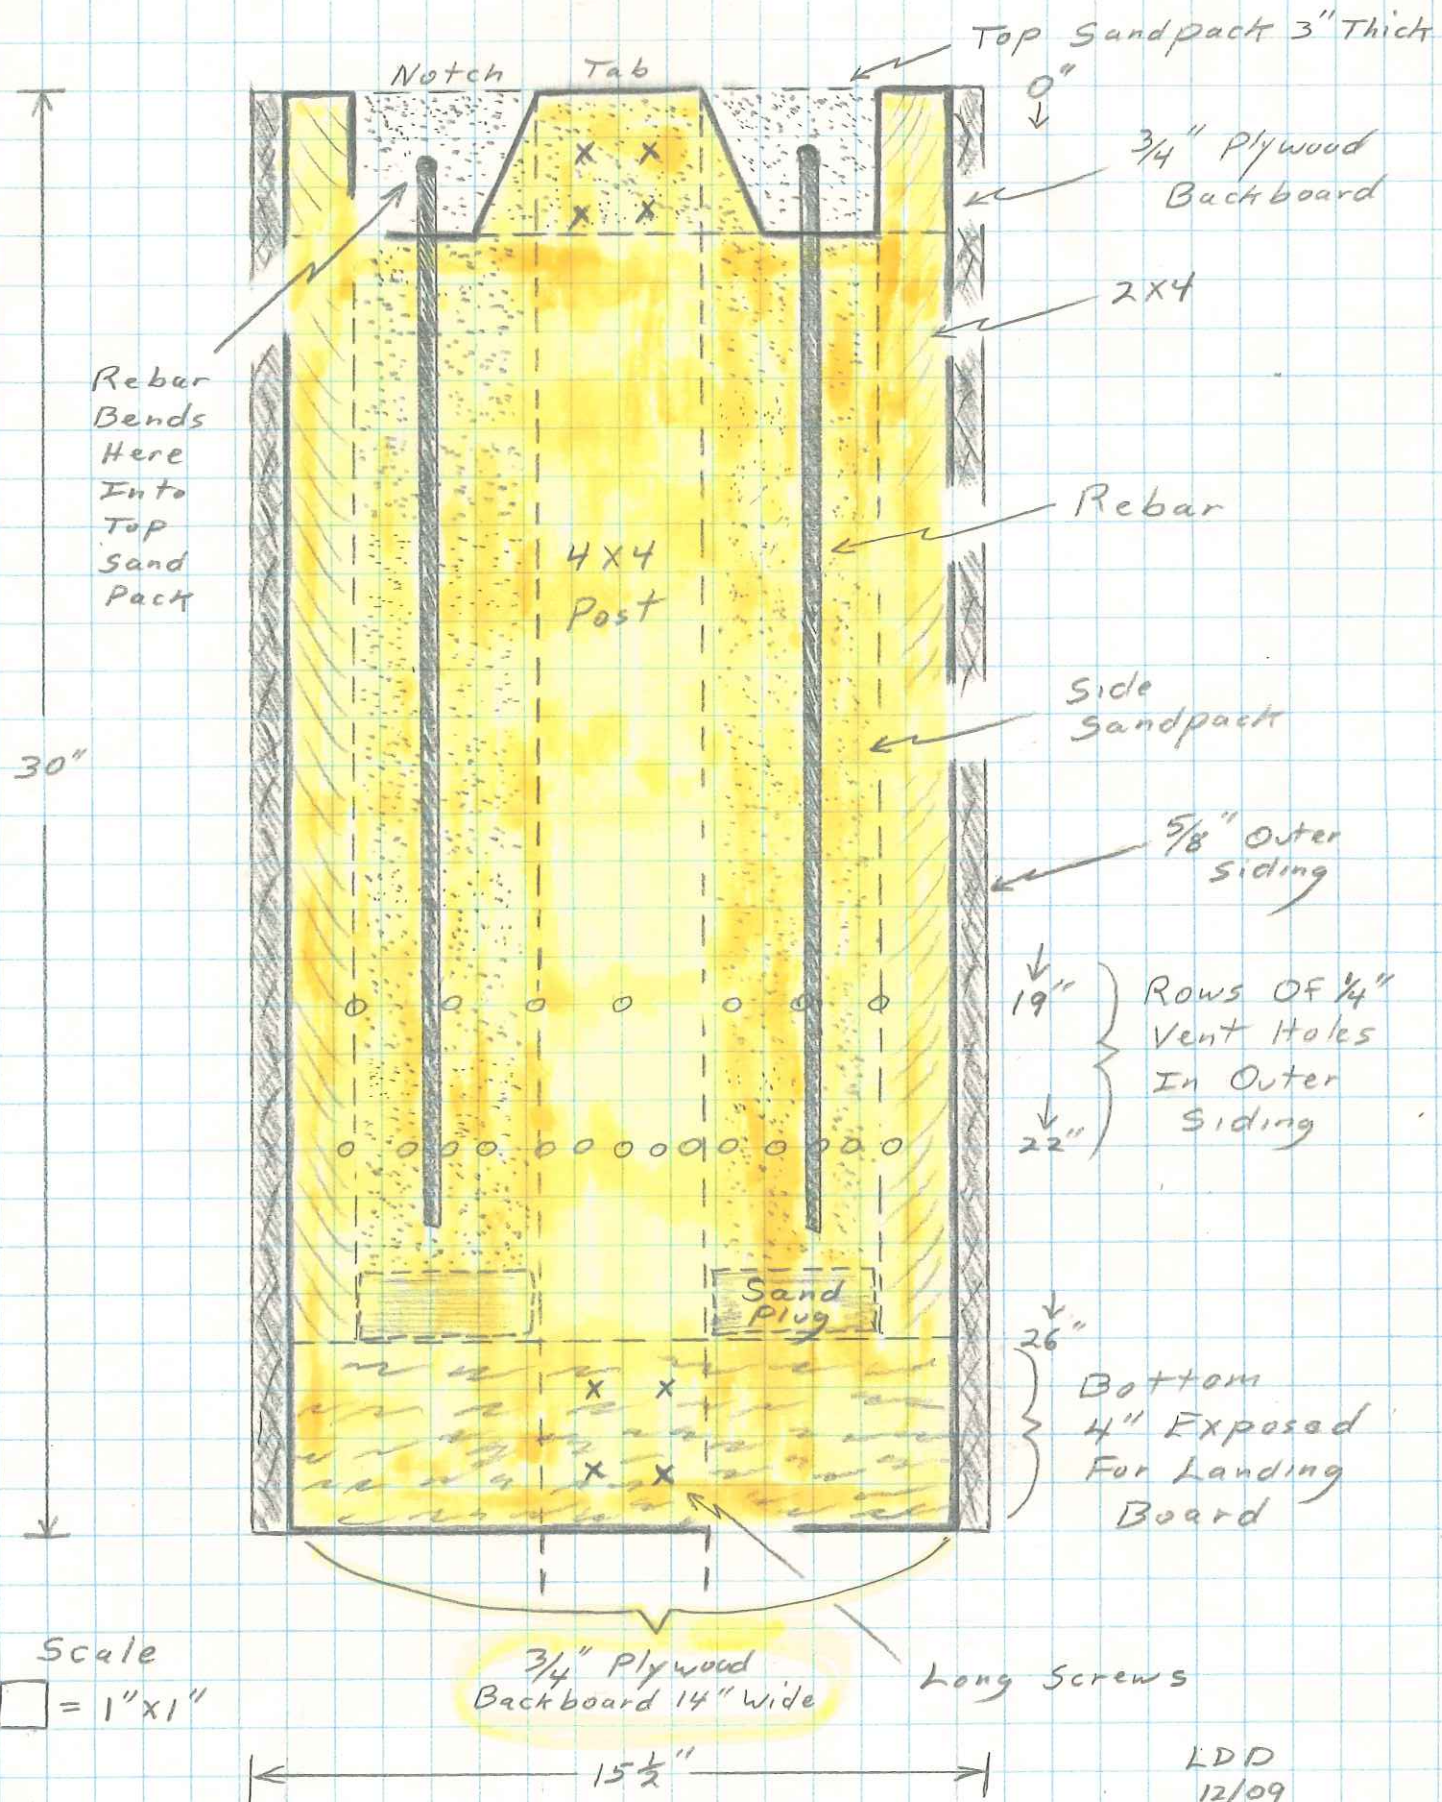 Top Sandpack 3" Thick
Notch
Tab
0"
3/4" Plywood
Backboard
2x4
Rebar
Bends
Here
Into
Top
Sand
Pack
Rebar
4x4
Post
Side
Sandpack
30"
5/8" Outer
Siding
19"
Rows Of 1/4"
Vent Holes
In Outer
Siding
22"
Sand
Plug
26"
Bottom
4" Exposed
For Landing
Board
Scale
= 1"x1"
3/4" Plywood
Backboard 14" Wide
Long Screws
15 1/2"
LDD
12/09